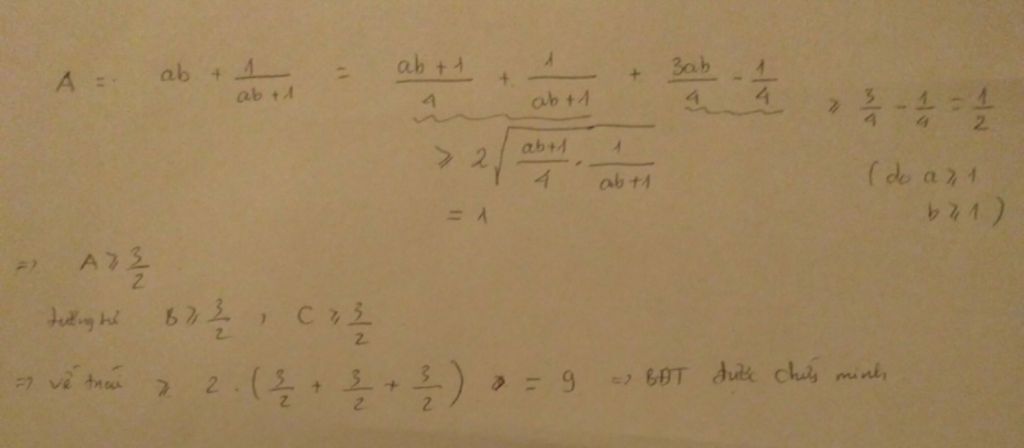 A = ab + 1/(ab+1) = (ab+1)/4 + 1/(ab+1) + 3ab/4 - 1/4 ≥ 3/4 - 1/4 = 1/2
≥ 2√((ab+1)/4 · 1/(ab+1)) (do a ≥ 1
= 1 b ≥ 1)
=> A ≥ 3/2
tương tự B ≥ 3/2 , C ≥ 3/2
=> vế trái ≥ 2 · (3/2 + 3/2 + 3/2) = 9 => BĐT được chứng minh